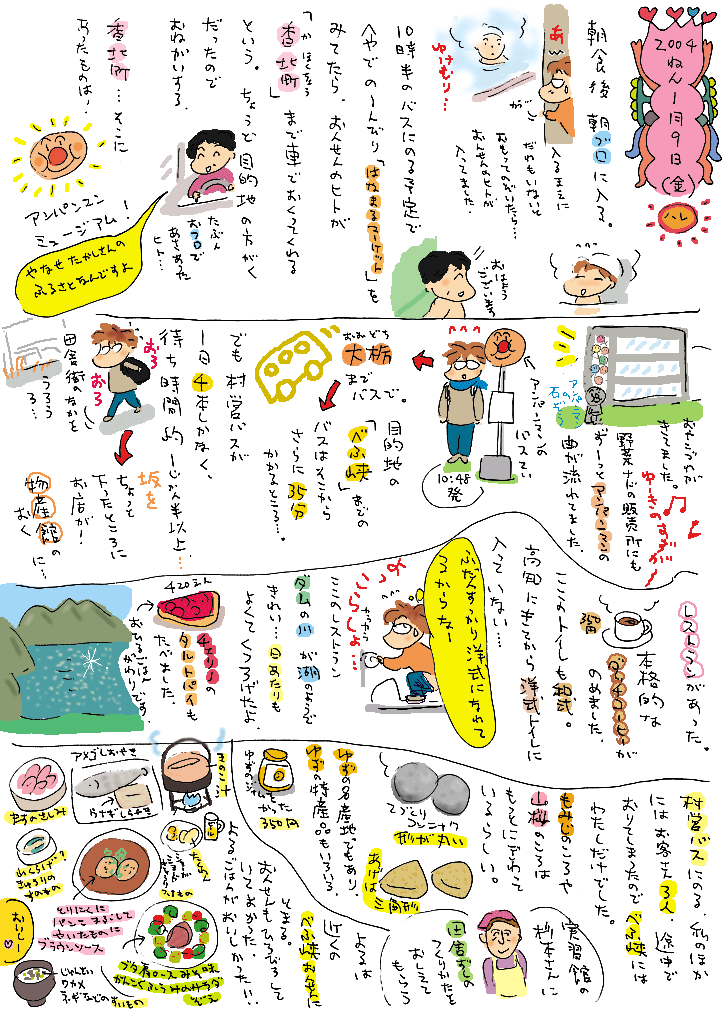 2004
ねん
1月
9日
(金)
ハレ
朝食後 朝ブロに入る。
あ
入るまえに
だれもいないと
おもってのぞいたら…
おんせんのヒトが
入ってました。
ゆけむり…
おはよう
ございます
10時半のバスにのる予定で
へやでのーんびり「はなまるマーケット」を
みてたら、おんせんのヒトが
「かほくちょう
香北町」まで車でおくってくれる
という。ちょうど目的地の方がく
だったので
おねがいする。
たぶん
おフロで
あさあった
ヒト…
香北町…そこに
あったものは!
アンパンマン
ミュージアム!
やなせたかしさんの
ふるさとなんですよ
おやこづれが
きてました。
ゆーきのすずが
野菜などの販売所にも
ずーっとアンパンマンの
曲が流れてました。
アンパンマンの
石ぞう
アンパンマンの
バスてい
10:48
発
おおどち
大栃まで
バスで。
目的地の
「べふ峡」までの
バスはそこから
さらに35分
かかるところ…。
でも村営バスが
1日4本しかなく、
待ち時間約1じかん半以上…
おろ
おろ
田舎街のなかを
うろうろ…
坂を
ちょっと
下ったところに
お店が!
物産館の
おくに…
レストランがあった。
本格的な
ダッチコーヒーが
のめました。
350円
ここのトイレも和式。
高知にきてから洋式トイレに
入っていない…
ふだんすっかり洋式になれて
るからなー
いらっしょ…
ここのレストラン
ダムの川が湖のようで
きれい…日あたりも
よくてくつろげたよ。
420えん
チェリーの
タルトパイも
たべました。
おひるごはん
がわりです。
村営バスにのる。私のほか
にはお客さん3人、途中で
おりてしまたのでべふ峡には
わたしだけでした。
もみじのころや
山桜のころは
もっとにぎわって
いるらしい。
てづくり
コンニャク
形が丸い
あげは
三角形
実習館の
杉本さんに
田舎ずしの
つくりかたを
おしえて
もらう
ゆずの名産地でもあり、
ゆずの特産品もいろいろ。
ゆずのジャム
かった
350円
よるは
近くの
べふ峡おんせんに
とまる。
おんせんもひろびろして
いてよかった
よるごはんがおいしかった!!
きのこ汁
アメゴしおやき
うさぎしちゅーやき
ますのさしみ
きゅうりの
すのもの
たくあん
つけもの
とりにくに
パンを まるごとして
やいたものに
ブラウンソース
ブタ肩ロースみそ味
かんこくふうみのサラダ
ぞえ
じゃんめん
ワカメ
ネギなどのすいもの
おいしー